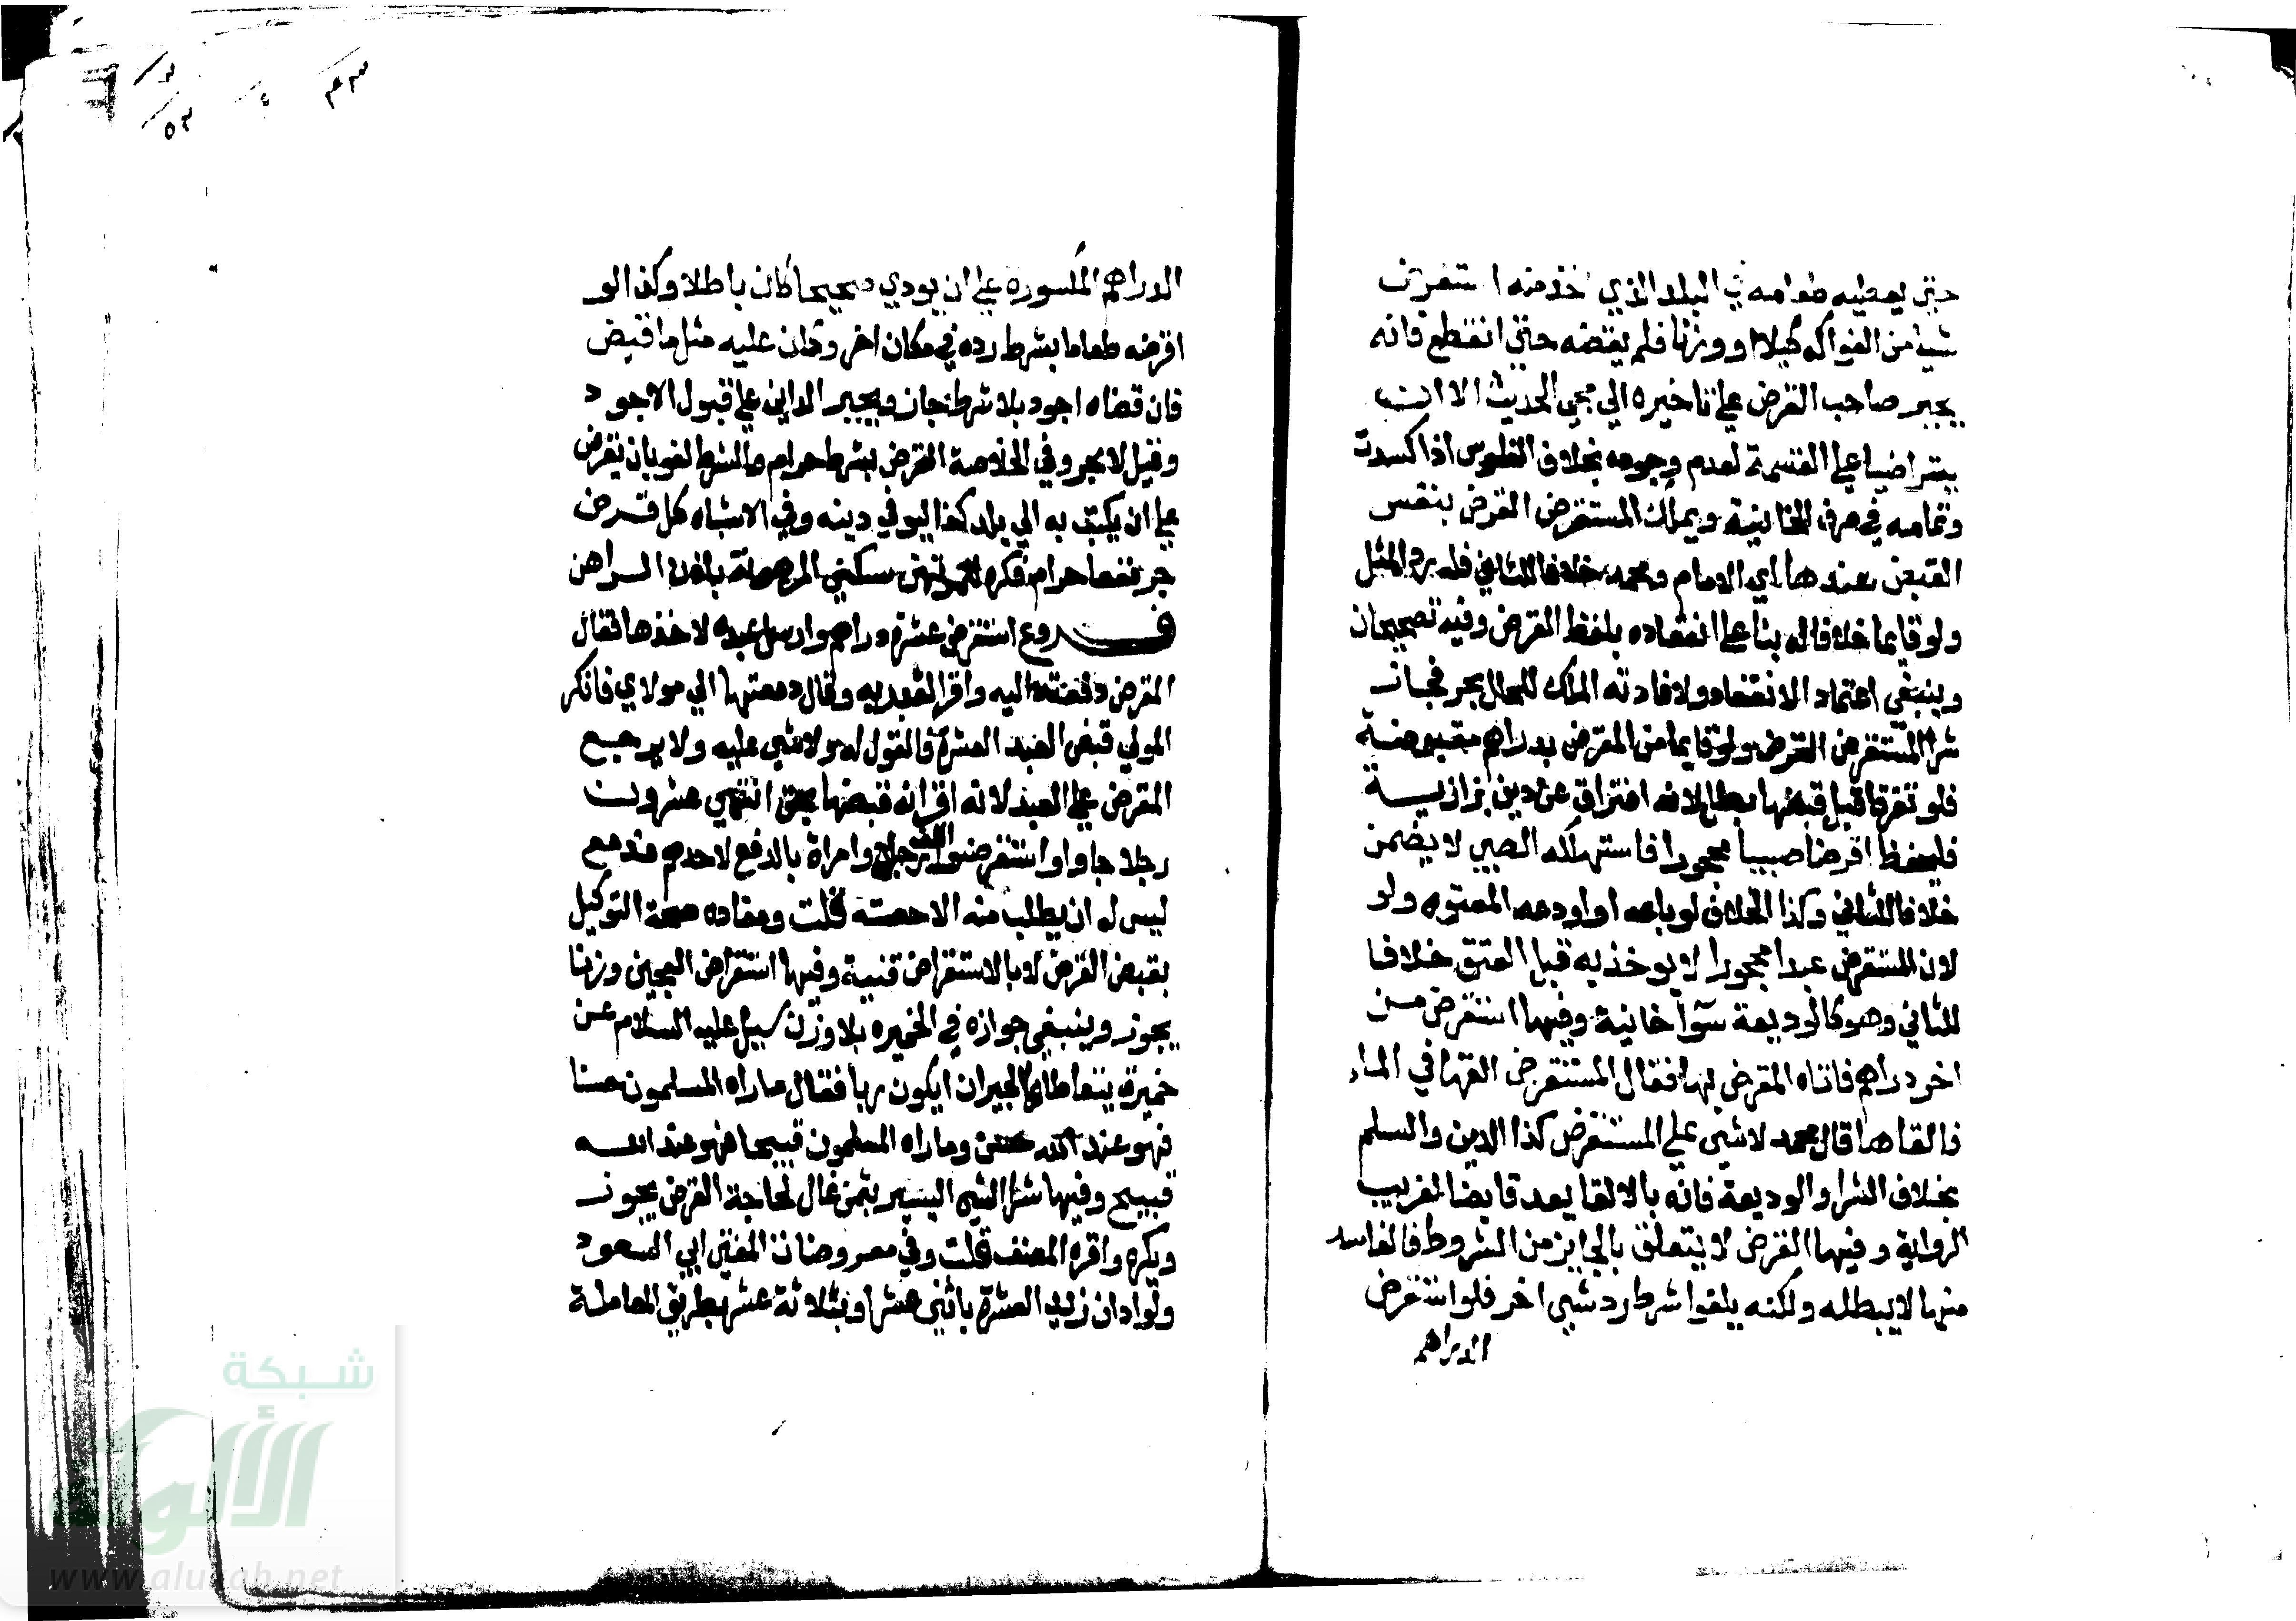 حتى يعطيه طعامه في البلد الذي اخذ منه استقرض
شيا من الفواكه كيلا او وزنا فلم يقضه حتى انقطع فانه
يجبر صاحب القرض على تاخيره الي مجي الحديث الا ان
يتراضيا على القسمة لعدم وجوده بخلاف الفلوس اذا كسدت
وتمامه في صرف الخانية ويملك المستقرض القرض بنفس
القبض عندهما اي الامام ومحمد خلافا للثاني فله رد المثل
ولو قايما خلافا له بنا على انعقاده بلفظ القرض وفيه تصحيحان
وينبغي اعتماد الانعقاد ولافادته الملك للحال بحر فجاز
شرا المستقرض القرض ولو قايما من المقرض بدراهم مقبوضة
فلو تفرقا قبل قبضها بطل لانه افتراق عن دين بزازية
فليحفظ اقرضا صبيا محجورا فاستهلكه الصبي لا يضمن
خلافا للثاني وكذا الخلاف لو باعه او اودعه المعتوه ولو
لان المستقرض عبدا محجورا لا يوخذ به قبل العتق خلافا
للثاني وهو كالوديعة سوآ خانية وفيها استقرض من
اخر دراهم فاتاه المقرض بها فقال المستقرض القها في الماء
فالقاها قال محمد لا شي على المستقرض كذا الدين والسلم
بخلاف الشرا والوديعة فانه بالالقا يعد قابضا لغريب
الرواية وفيها القرض لا يتعلق بالجايز من الشروط فالفاسد
منها لا يبطله ولكنه يلغوا شرط رد شي اخر فلو استقرض
الدراهم
الدراهم المكسوره على ان يودي صحيحا كان باطلا وكذا لو
اقرضه طعاما بشرط رده في مكان اخر وكان عليه مثل ما قبض
فان قضاه اجود بلا شرط جاز ويجبر الداين على قبول الاجود
وقيل لا بحر وفي الخلاصة القرض بشرط حرام والشرط لغو بان يقرض
على ان يكتب به الي بلد كذا ليوفي دينه وفي الاشباه كل قرض
جر نفعا حرام فكره للمرتهن سكنى المرهونة باذن الراهن
فروع استقرض عشرة دراهم وارسل عبده لاخذها فقال
المقرض دفعته اليه واقر العبد به وقال دفعتها الي مولاي فانكر
المولي قبض العبد العشرة فالقول له ولا شي عليه ولا يرجع
المقرض على العبد لانه اقر انه قبضها بحق انتهي عشرون
رجلا جاوا واستقرضوا من رجل وامراة بالدفع لاحدهم فدفع
ليس له ان يطلب منه الا حصته قلت ومفاده صحة التوكيل
بقبض القرض لا بالاستقراض قنية وفيها استقراض العجين وزنا
يجوز وينبغي جوازه في الخميره بلا وزن سيل عليه السلام عن
خميرة يتعاطاها الجيران ايكون ربا فقال ما راه المسلمون حسنا
فهو عند الله حسن وما راه المسلمون قبيحا فهو عند الله
قبيح وفيها شرا الشي اليسير بثمن غال لحاجة القرض يجوز
ويكره واقره المصنف قلت وفي معروضات المفتي ابي السعود
ولو ادان زيد العشرة باثنى عشر او بثلاثة عشر بطريق المعاملة
شبكة
الألوكة
www.alukah.net